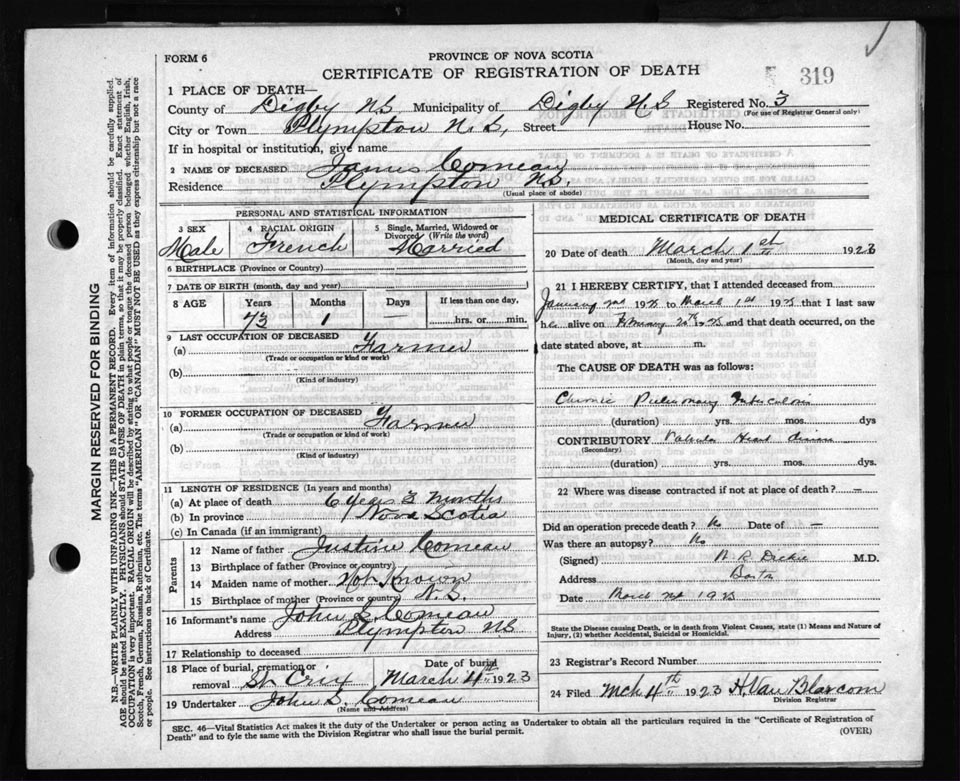 FORM 6
PROVINCE OF NOVA SCOTIA
CERTIFICATE OF REGISTRATION OF DEATH
319
1 PLACE OF DEATH—
County of Digby N S Municipality of Digby N.S Registered No. 3
(For use of Registrar General only)
City or Town Plympton N. S, Street House No.
If in hospital or institution, give name
2 NAME OF DECEASED James Comeau
Residence Plympton N.S.
(Usual place of abode)
PERSONAL AND STATISTICAL INFORMATION
3 SEX 4 RACIAL ORIGIN 5 Single, Married, Widowed or Divorced (Write the word)
Male French Married
6 BIRTHPLACE (Province or Country)
7 DATE OF BIRTH (month, day and year)
8 AGE Years Months Days If less than one day,
73 1 — hrs. or min.
9 LAST OCCUPATION OF DECEASED
(a) Farmer
(Trade or occupation or kind of work)
(b)
(Kind of industry)
10 FORMER OCCUPATION OF DECEASED
(a) Farmer
(Trade or occupation or kind of work)
(b)
(Kind of industry)
11 LENGTH OF RESIDENCE (In years and months)
(a) At place of death 6 Years 3 Months
(b) In province Nova Scotia
(c) In Canada (if an immigrant)
Parents
12 Name of father Justine Comeau
13 Birthplace of father (Province or country)
14 Maiden name of mother Not Known
15 Birthplace of mother (Province or country) N. S.
16 Informant's name John S Comeau
Address Plympton NS
17 Relationship to deceased
18 Place of burial, cremation or removal St. Crix Date of burial March 4th 1923
19 Undertaker John S. Comeau
(Name and Address)
MEDICAL CERTIFICATE OF DEATH
20 Date of death March 1st 1923
(Month, day and year)
21 I HEREBY CERTIFY, that I attended deceased from
January to March 1st that I last saw
h alive on February and that death occurred, on the
date stated above, at m.
The CAUSE OF DEATH was as follows:
Chronic Pulmonary Tuberculosis
(duration) yrs. mos. dys
CONTRIBUTORY Valvular Heart disease
(Secondary)
(duration) yrs. mos. dys.
22 Where was disease contracted if not at place of death? —
Did an operation precede death? No Date of —
Was there an autopsy? No
(Signed) Dickie M.D.
Address
Date March
State the Disease causing Death, or in death from Violent Causes, state (1) Means and Nature of Injury, (2) whether Accidental, Suicidal or Homicidal.
23 Registrar's Record Number
24 Filed Mch 4th 1923 H. Van Blarcom
Division Registrar
SEC. 46—Vital Statistics Act makes it the duty of the Undertaker or person acting as Undertaker to obtain all the particulars required in the "Certificate of Registration of
Death" and to fyle the same with the Division Registrar who shall issue the burial permit.
(OVER)
MARGIN RESERVED FOR BINDING
N.B.—WRITE PLAINLY WITH UNFADING INK—THIS IS A PERMANENT RECORD. Every item of information should be carefully supplied.
AGE should be stated EXACTLY. PHYSICIANS should STATE CAUSE OF DEATH in plain terms, so that it may be properly classified. Exact statement of
OCCUPATION is very important. RACIAL ORIGIN will be described by stating to what people or tongue the deceased person belonged whether English, Irish,
Scotch, French, German, Russian, Ruthenian, etc. The terms "AMERICAN" or "CANADIAN" MUST NOT BE USED as they express citizenship but not a race
or people. See instructions on back of Certificate.